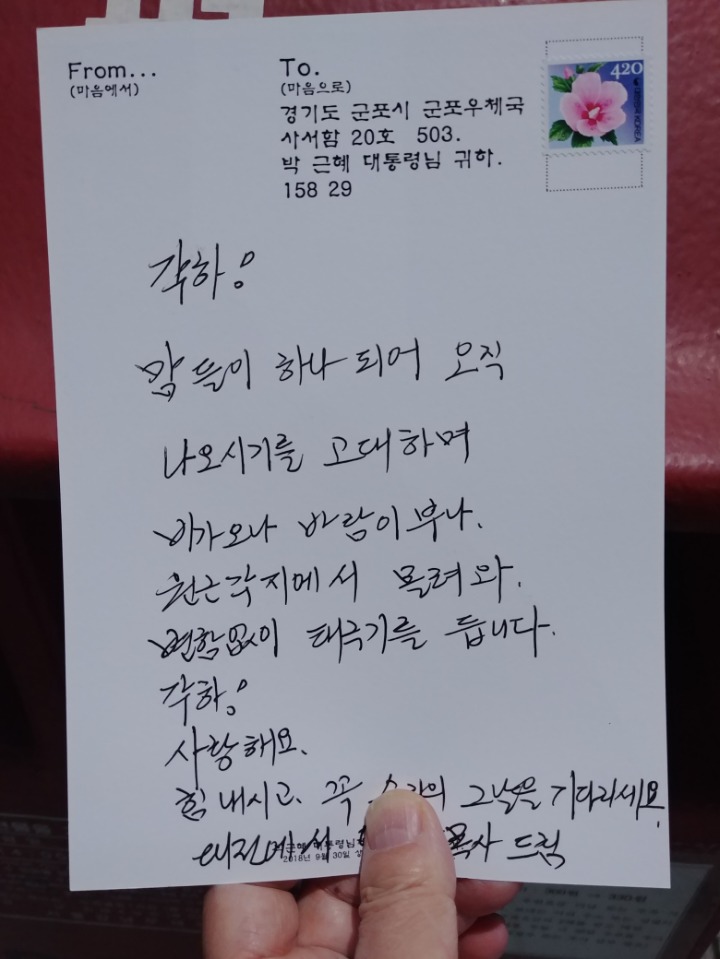 From...
(마음에서)
To.
(마음으로)
경기도 군포시 군포우체국
사서함 20호 503.
박 근혜 대통령님 귀하.
158 29
420
대한민국 KOREA
각하!
맘들이 하나 되어 오직
나오시기를 고대하며
비가오나 바람이부나.
원근각지에서 몰려와.
변함없이 태극기를 듭니다.
각하!
사랑해요.
힘 내시고. 꼭 의 그날을 기다리세요
대전에서 목사 드림
근혜 대통령님
2018년 9월 30일